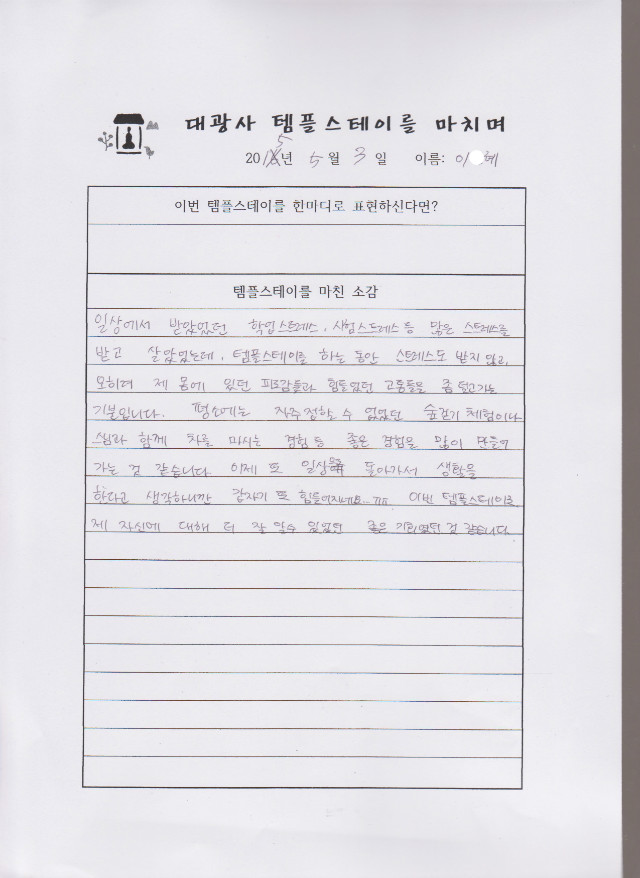 대광사 템플스테이를 마치며
2015년 5월 3일 이름: 이 혜
이번 템플스테이를 한마디로 표현하신다면?
템플스테이를 마친 소감
일상에서 받았었던 학업스트레스, 시험스트레스 등 많은 스트레스를
받고 살았었는데, 템플스테이를 하는 동안 스트레스도 받지 않고,
오히려 제 몸에 있던 피로감들과 힘들었던 고통들을 좀 덜고가는
기분입니다. 평소에는 자주 접할 수 없었던 숲걷기 체험이나
스님과 함께 차를 마시는 경험 등 좋은 경험을 많이 만들어
가는 것 같습니다 이제 또 일상으로 돌아가서 생활을
한다고 생각하니깐 갑자기 또 힘들어지네요.. ㅠㅠ 이번 템플스테이로
제 자신에 대해 더 잘 알수 있었던 좋은 기회였던 것 같습니다.